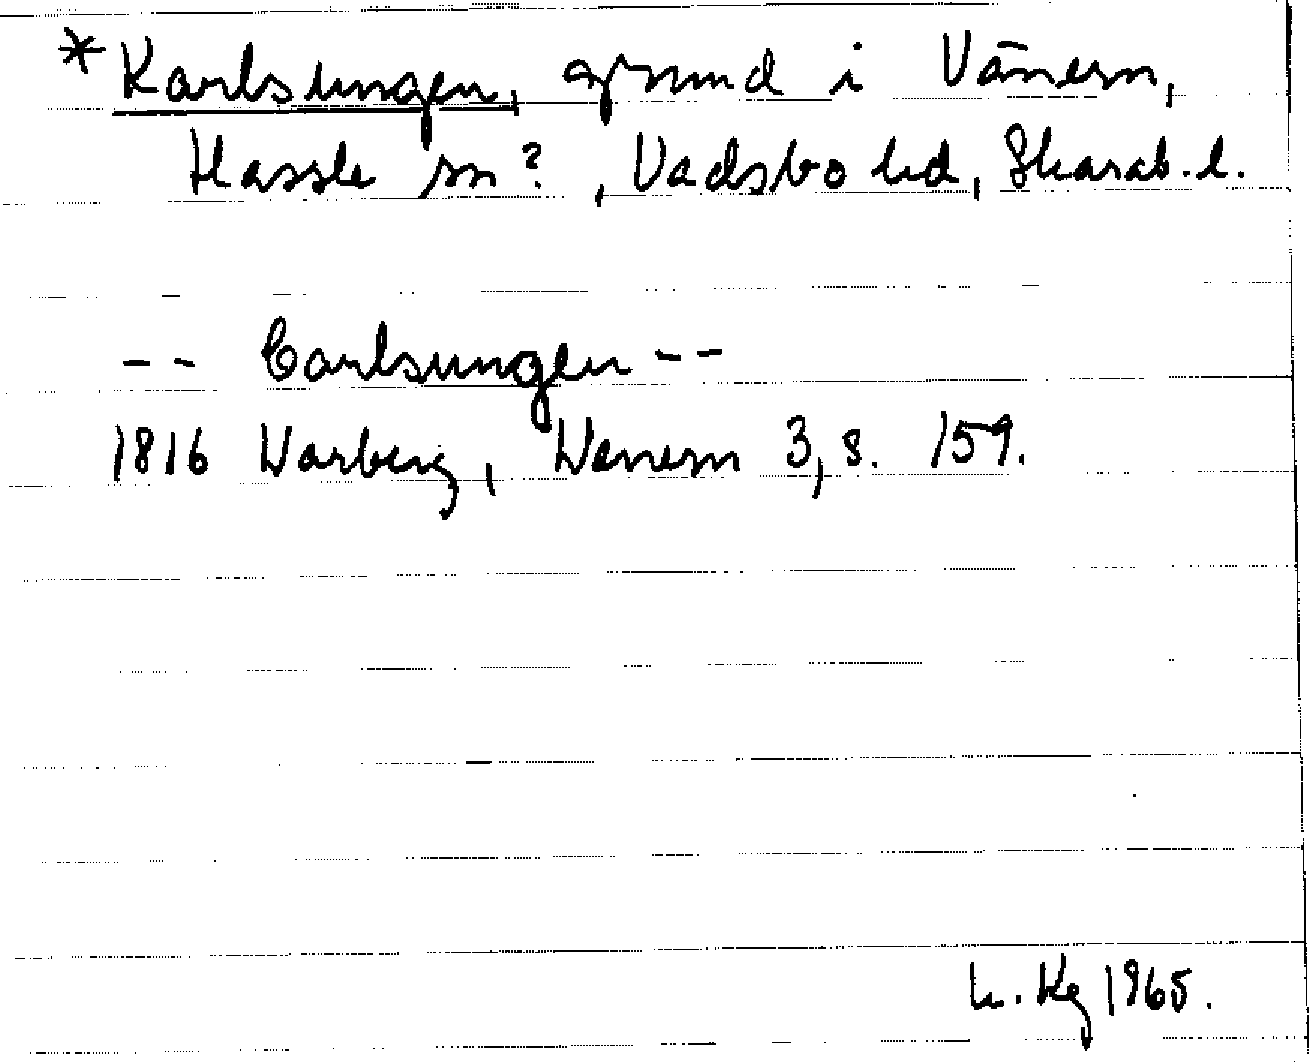 *Karlsungen, grund i Vänern,
Hassle sn?, Vadsbo hd, Skarab. l.
-- Carlsungen --
1816 Warberg, Wenern 3, s. 159.
Kg 1965.